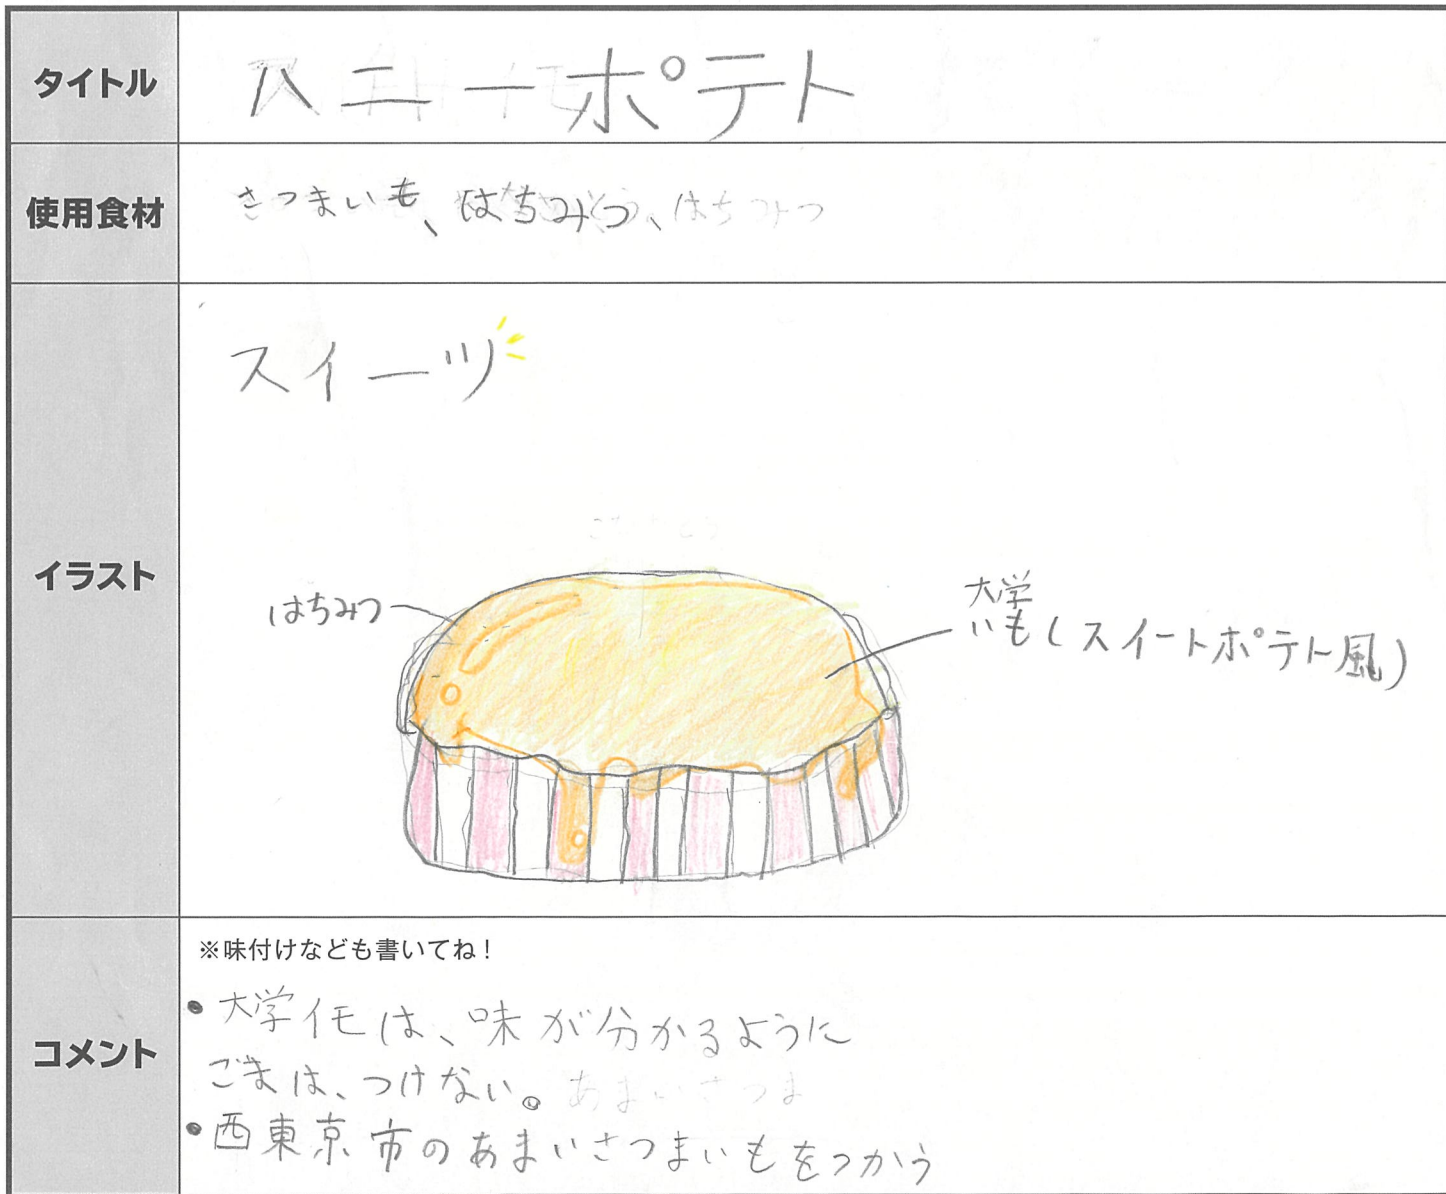 タイトル
ハニーポテト
使用食材
さつまいも、はちみつ、はちみつ
イラスト
スイーツ
はちみつ
大学
いも(スイートポテト風)
コメント
※味付けなども書いてね!
・大学イモは、味が分かるように
ごまは、つけない。あまいさつま
・西東京市のあまいさつまいもをつかう